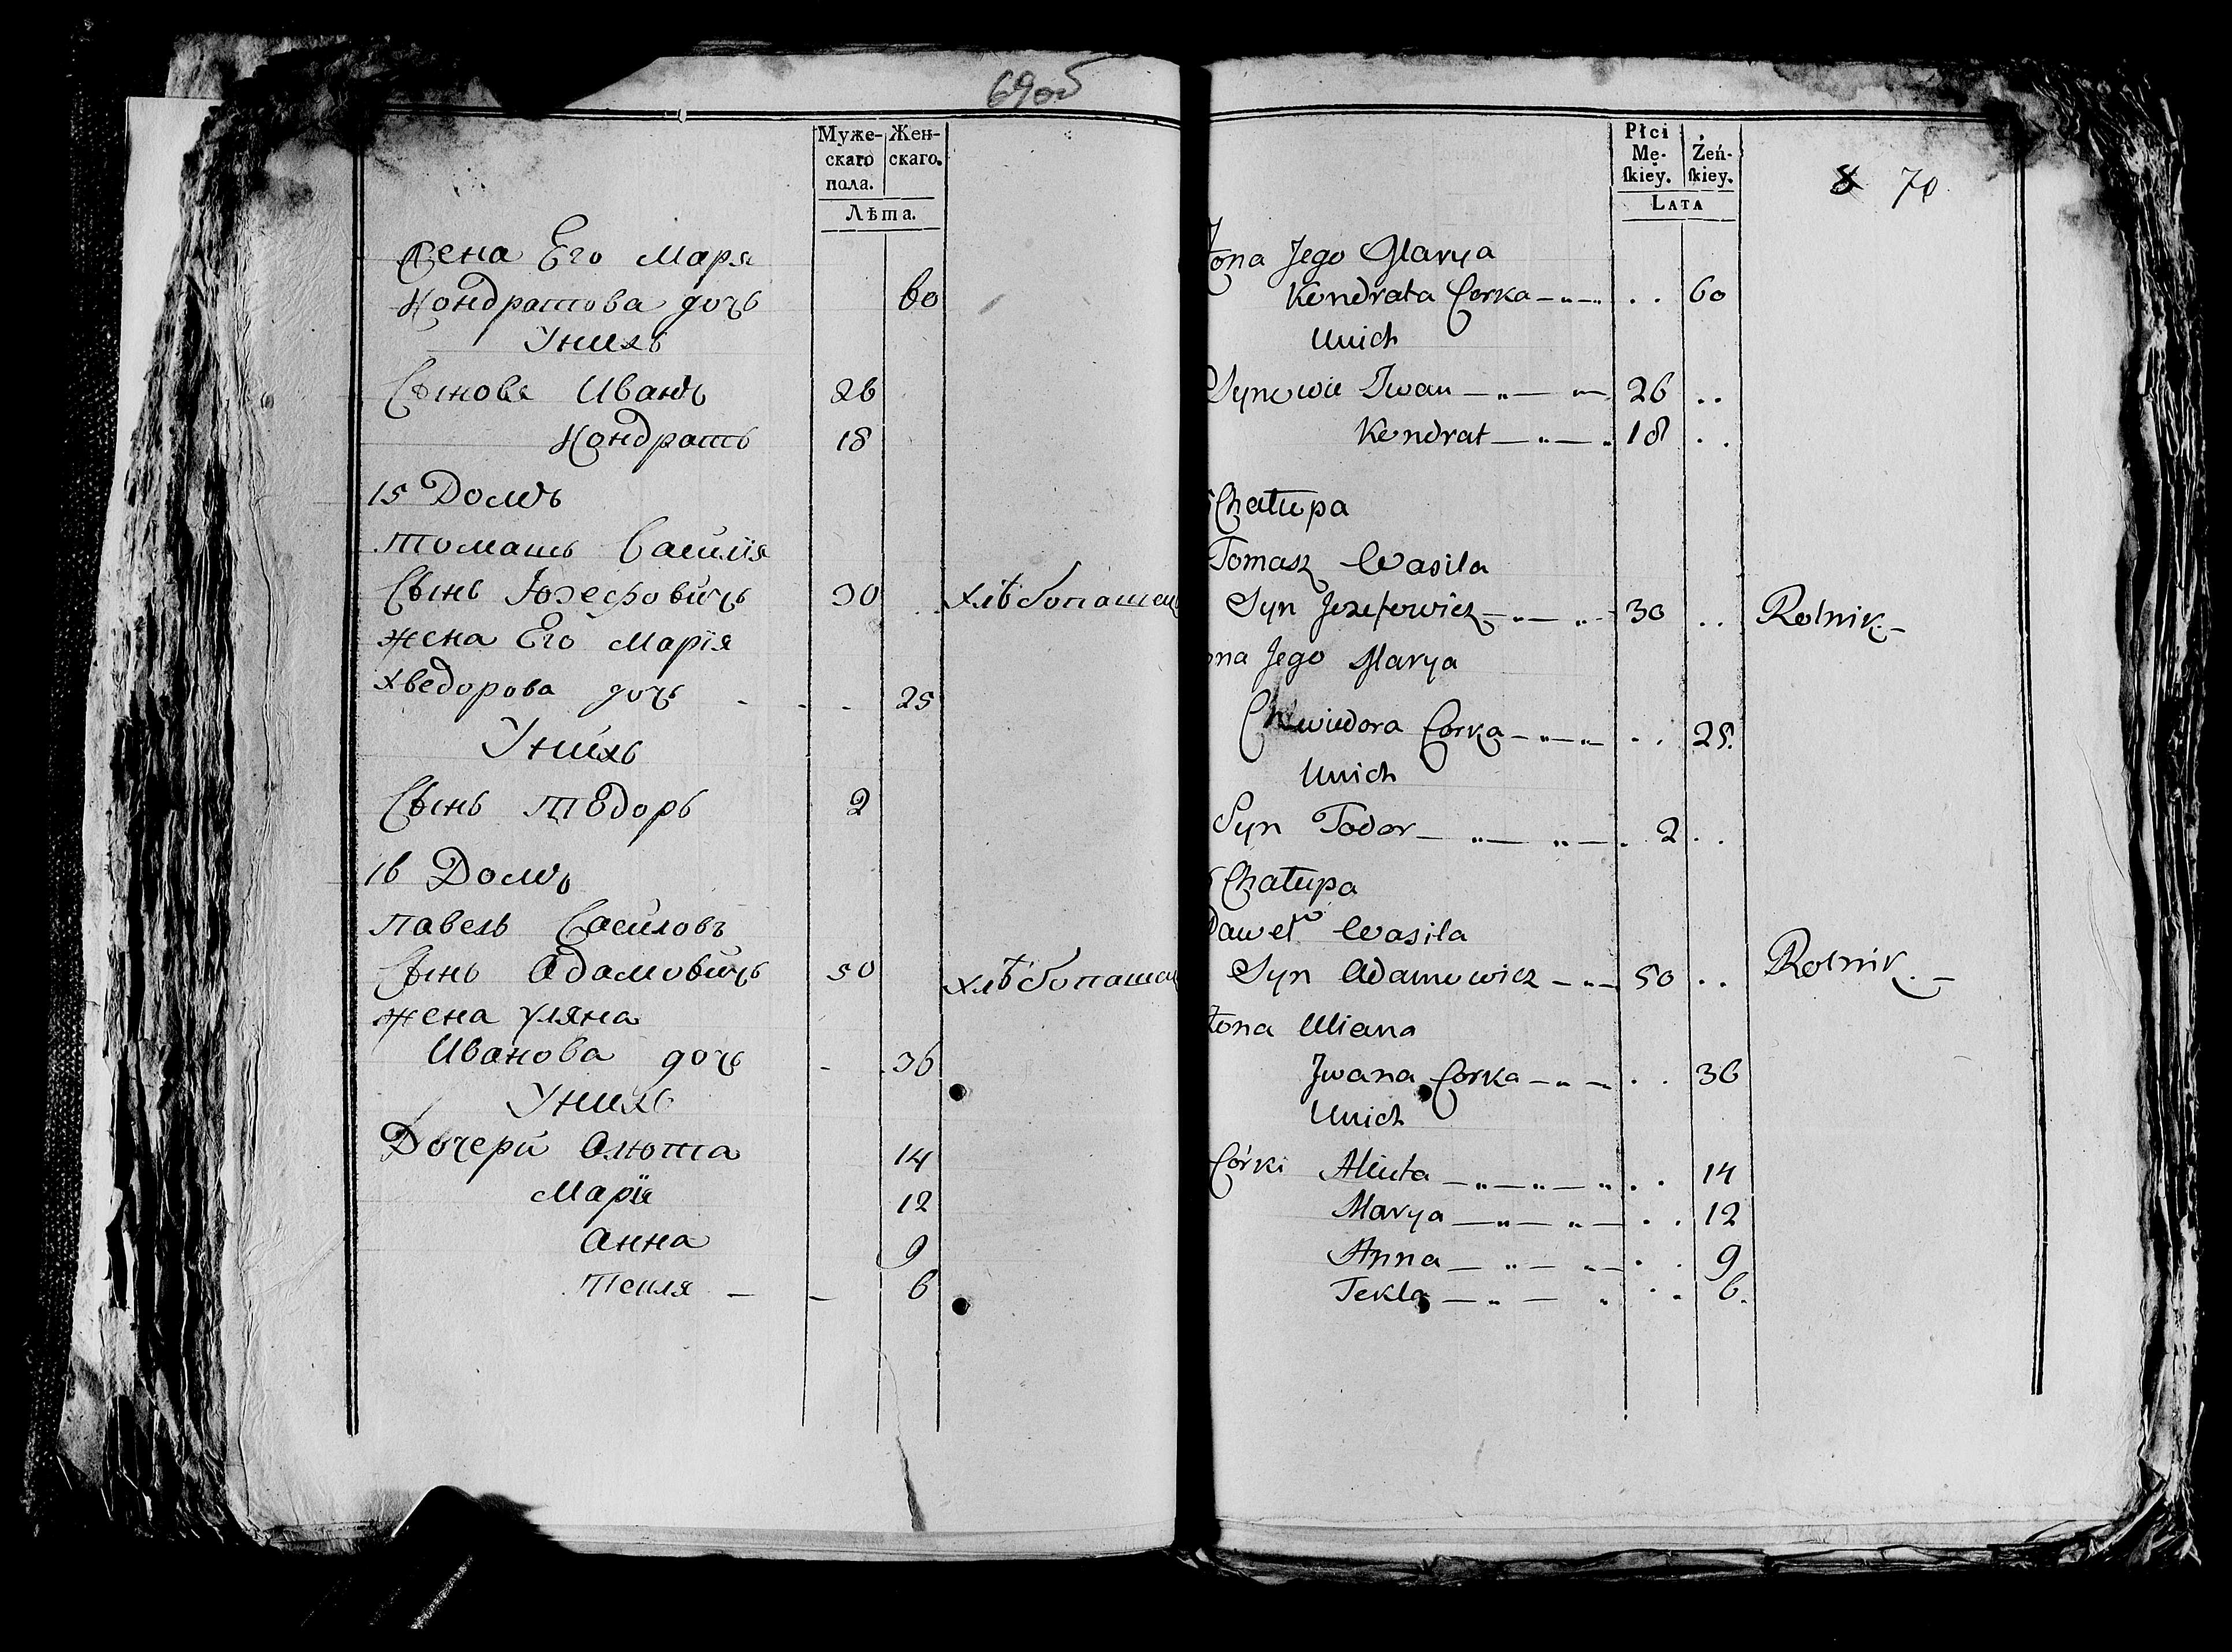 69об
Муже- Жен-
скаго скаго.
пола.
Лѣта.
жена Его Маря
Кондратова дочь 60
Унихъ
Сынове Иванъ 26
Кондратъ 18
15 Домъ
Томашъ Василiя
Сынъ Юзефовичъ 30 хлѣбопашецъ
жена Его Марiя
Хведорова дочь - - - 25
Унихъ
Сынъ Тодоръ 2
16 Домъ
Павелъ Василовъ
Сынъ Адамовичъ 50 хлѣбопашец
жена Уляна
Иванова дочь - 36
Унихъ
Дочери Алюта 14
Марiя 12
Анна 9
Текля - - 6
Płci
Mę- Żeń-
ſkiey. ſkiey.
LATA
8 70
Żona Jego Marya
Kondrata Corka . . 60
Unich
Synowie Iwan 26 . .
Kondrat 18 . .
Chałupa
Tomasz Wasila
Syn Jozefowicz 30 . . Rolnik.
ona Jego Marya
Chwiedora Corka . . 25.
Unich
Syn Todor . 2 . .
Chałupa
Paweł Wasila
Syn Adamowicz 50 . . Rolnik.
żona Uliana
Jwana Corka . . 36
Unich
Córki Aliuta . . 14
Marya . . 12
Anna . . 9
Tekla . . 6.